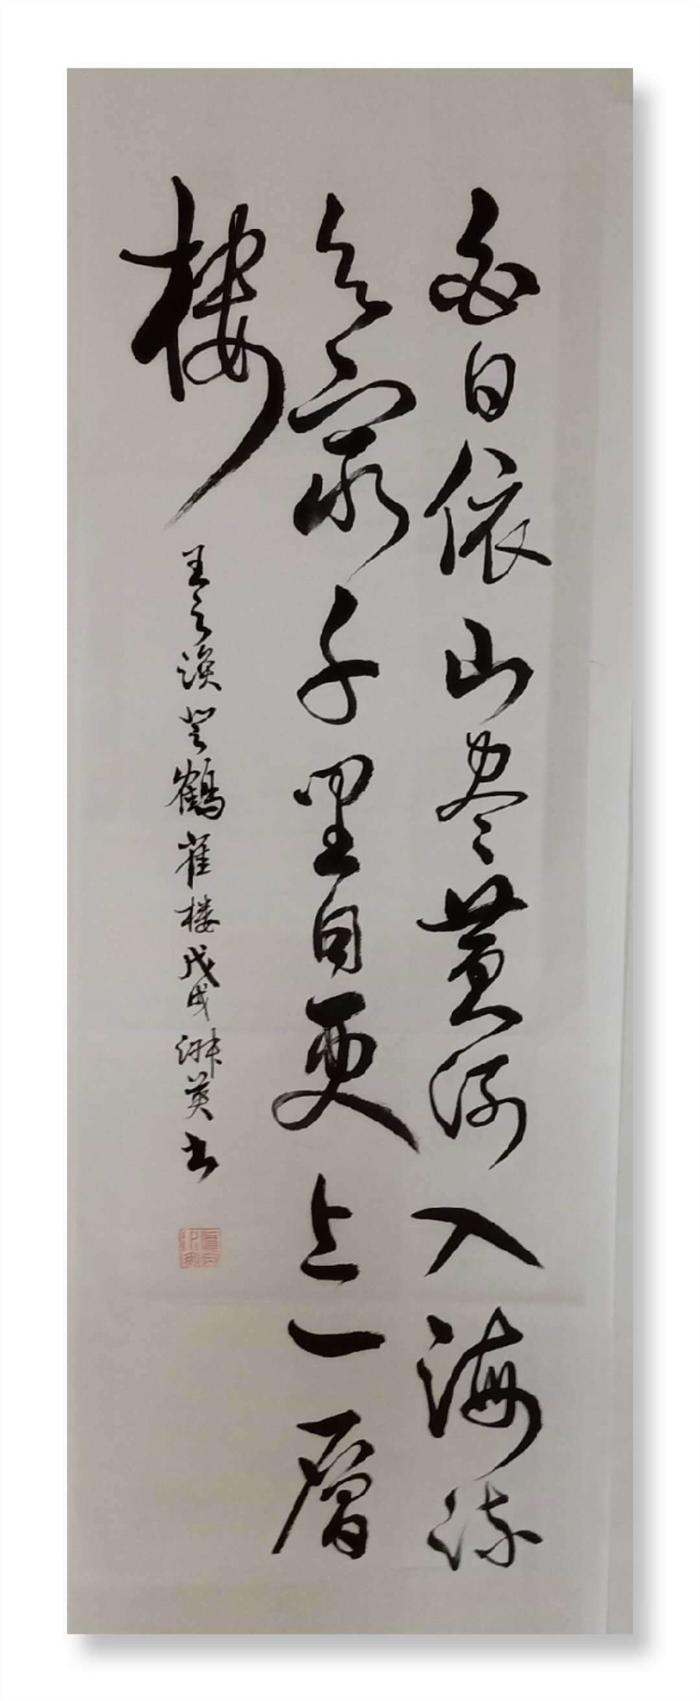 白日依山尽黄河入海流
欲穷千里目更上一層
楼
王之涣登鶴雀楼戊戌英书